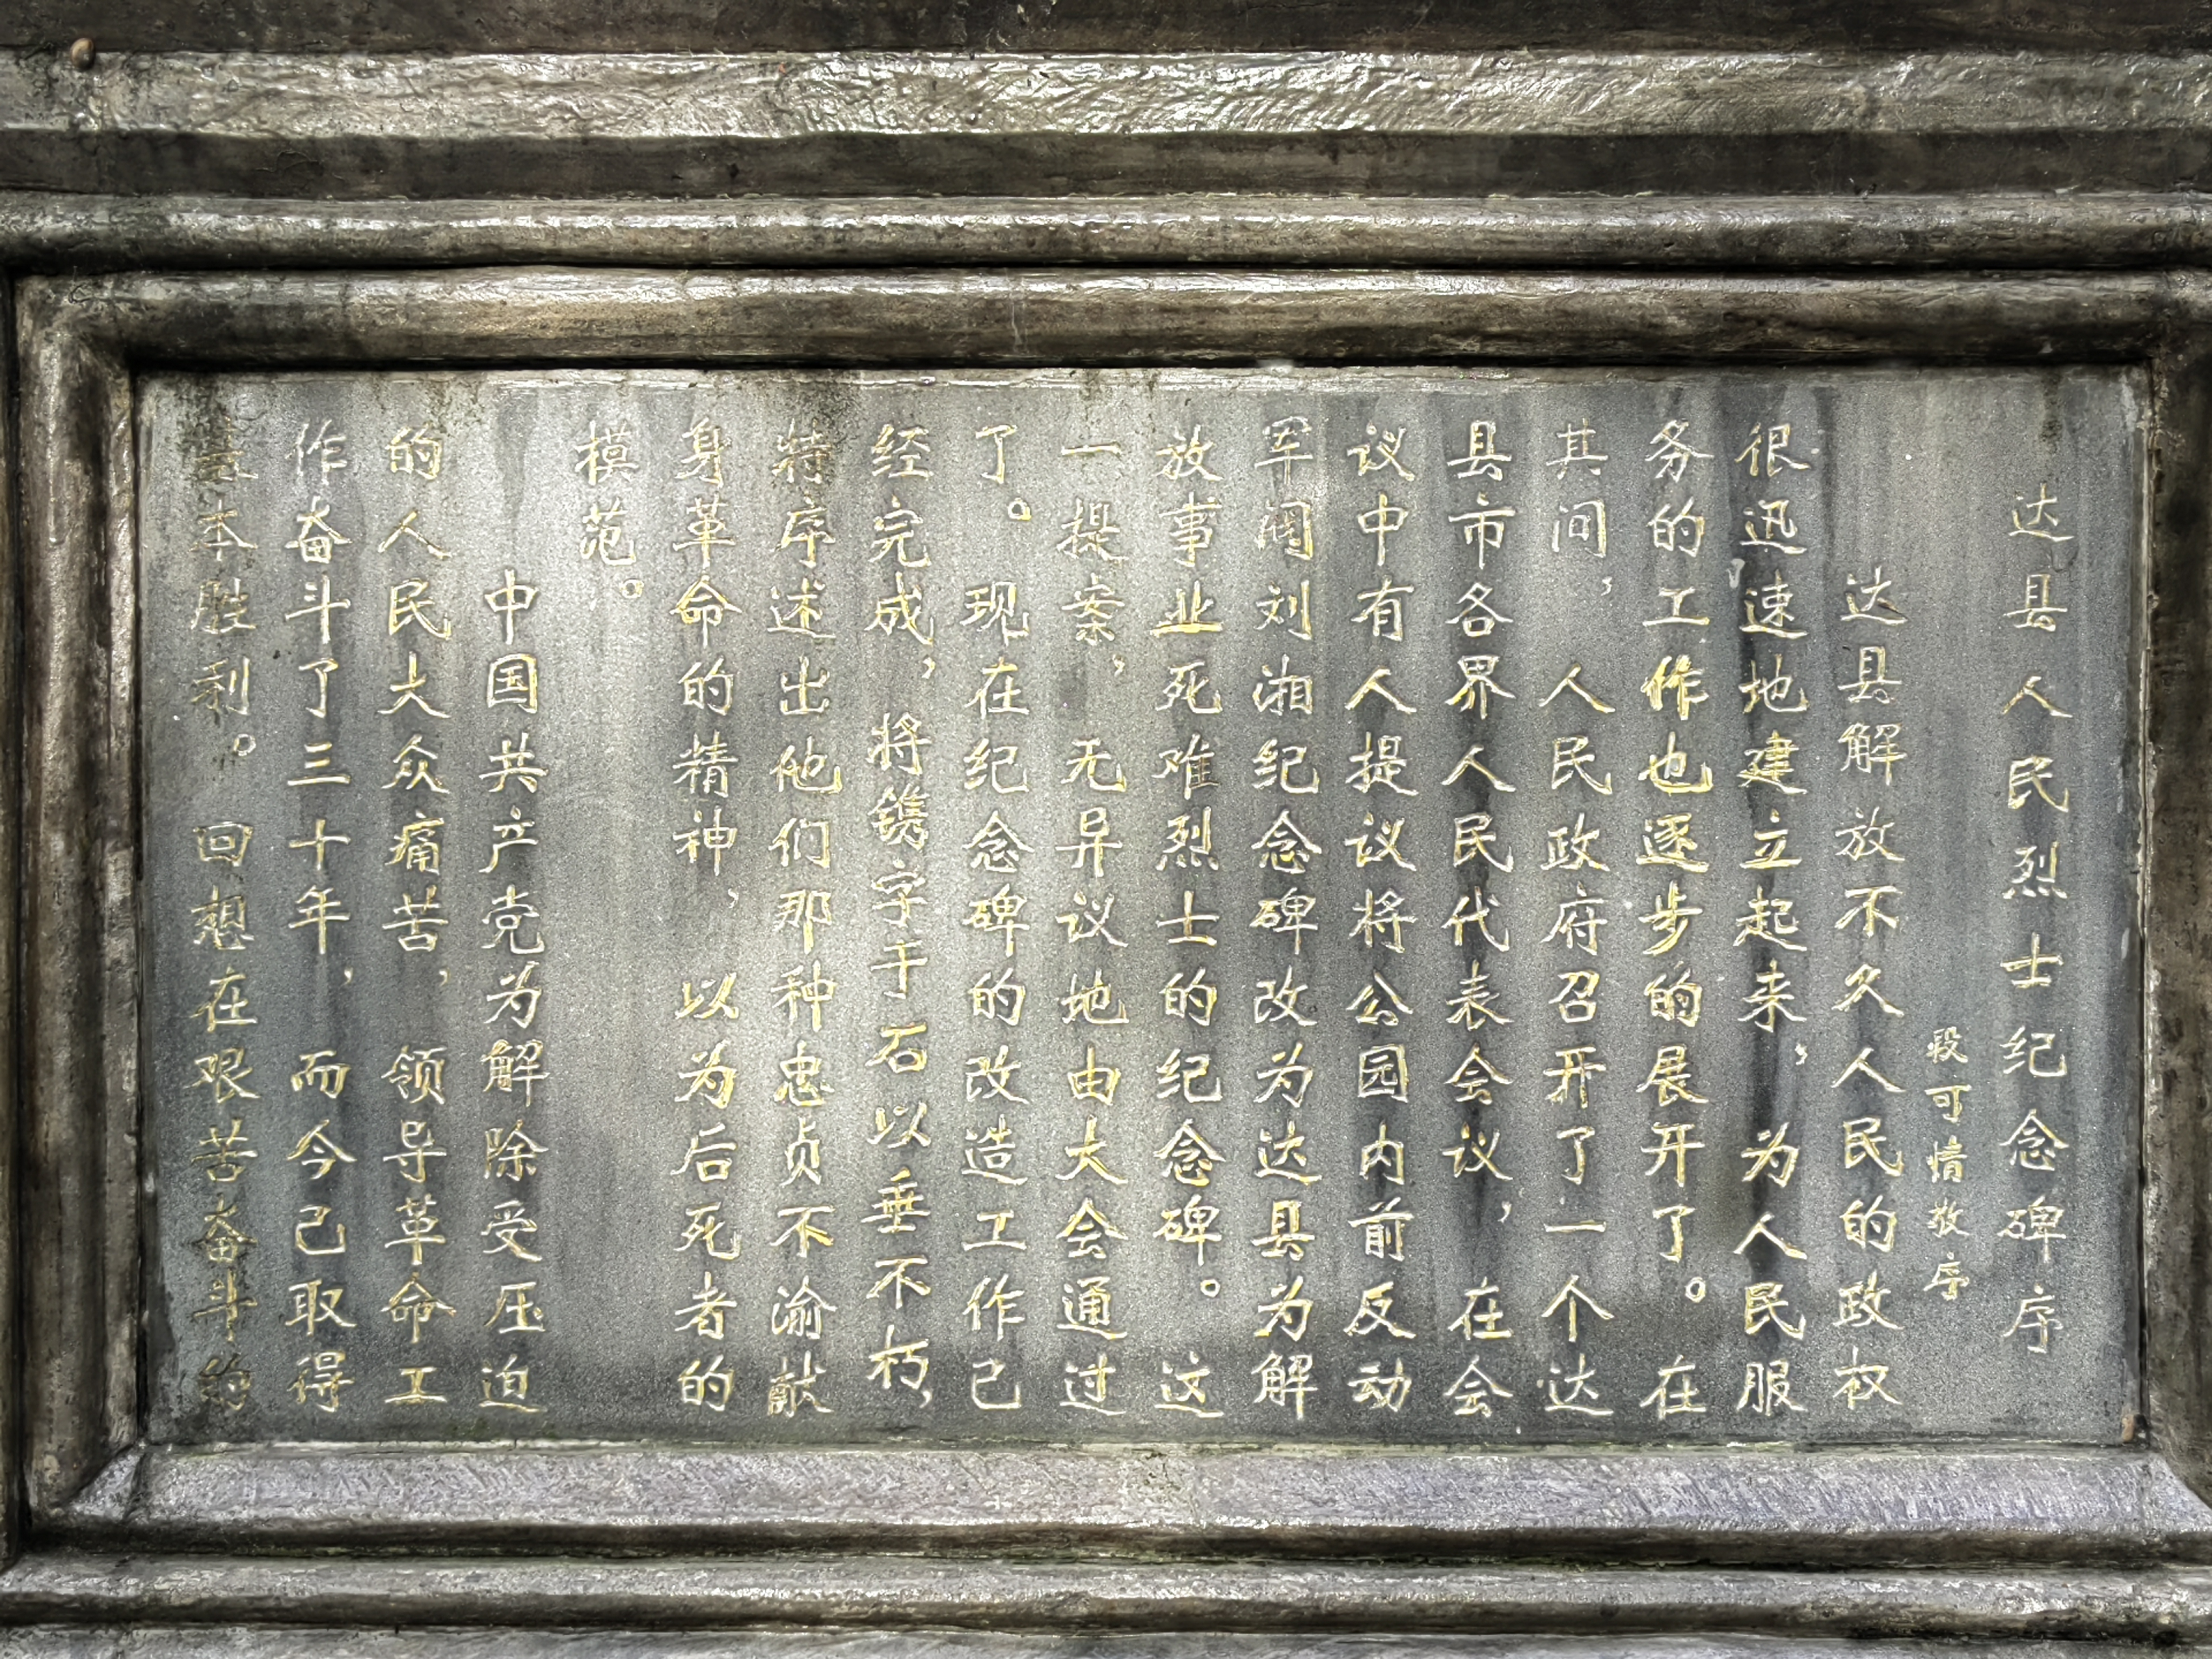 达县人民烈士纪念碑序
段可情敬序
达县解放不久人民的政权
很迅速地建立起来，为人民服
务的工作也逐步的展开了。在
其间，人民政府召开了一个达
县市各界人民代表会议，在会
议中有人提议将公园内前反动
军阀刘湘纪念碑改为达县为解
放事业死难烈士的纪念碑。这
一提案，无异议地由大会通过
了。现在纪念碑的改造工作已
经完成，将镌字于石以垂不朽，
特序述出他们那种忠贞不渝献
身革命的精神，以为后死者的
模范。
中国共产党为解除受压迫
的人民大众痛苦，领导革命工
作奋斗了三十年，而今已取得
基本胜利。回想在艰苦奋斗的